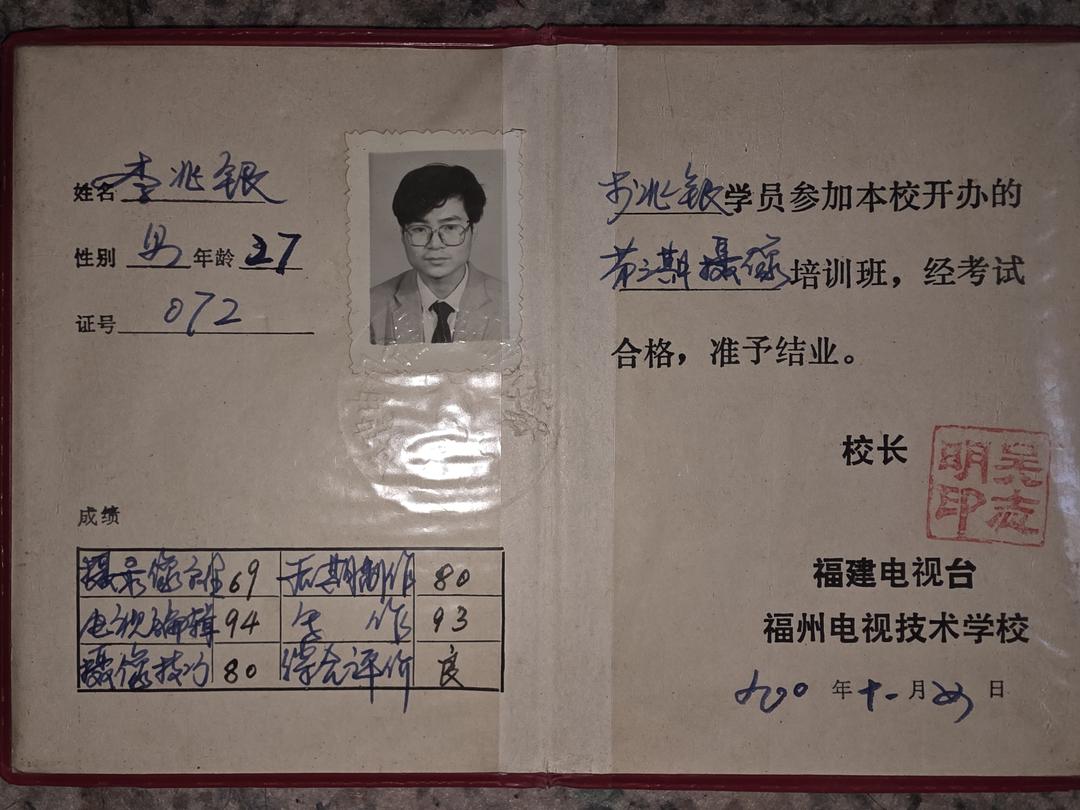 姓名 李兆银
性别 男 年龄 27
证号 072
成绩
摄录像 69 后期制作 80
电视编辑 94 作 93
摄像技巧 80 综合评价 良
李兆银学员参加本校开办的
第三期摄像培训班，经考试
合格，准予结业。
校长
吴志明印
福建电视台
福州电视技术学校
年十一月 日